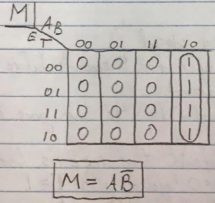 M
AB
ET
00 01 11 10
00 0 0 0 1
01 0 0 0 1
11 0 0 0 1
10 0 0 0 1
M = AB̅